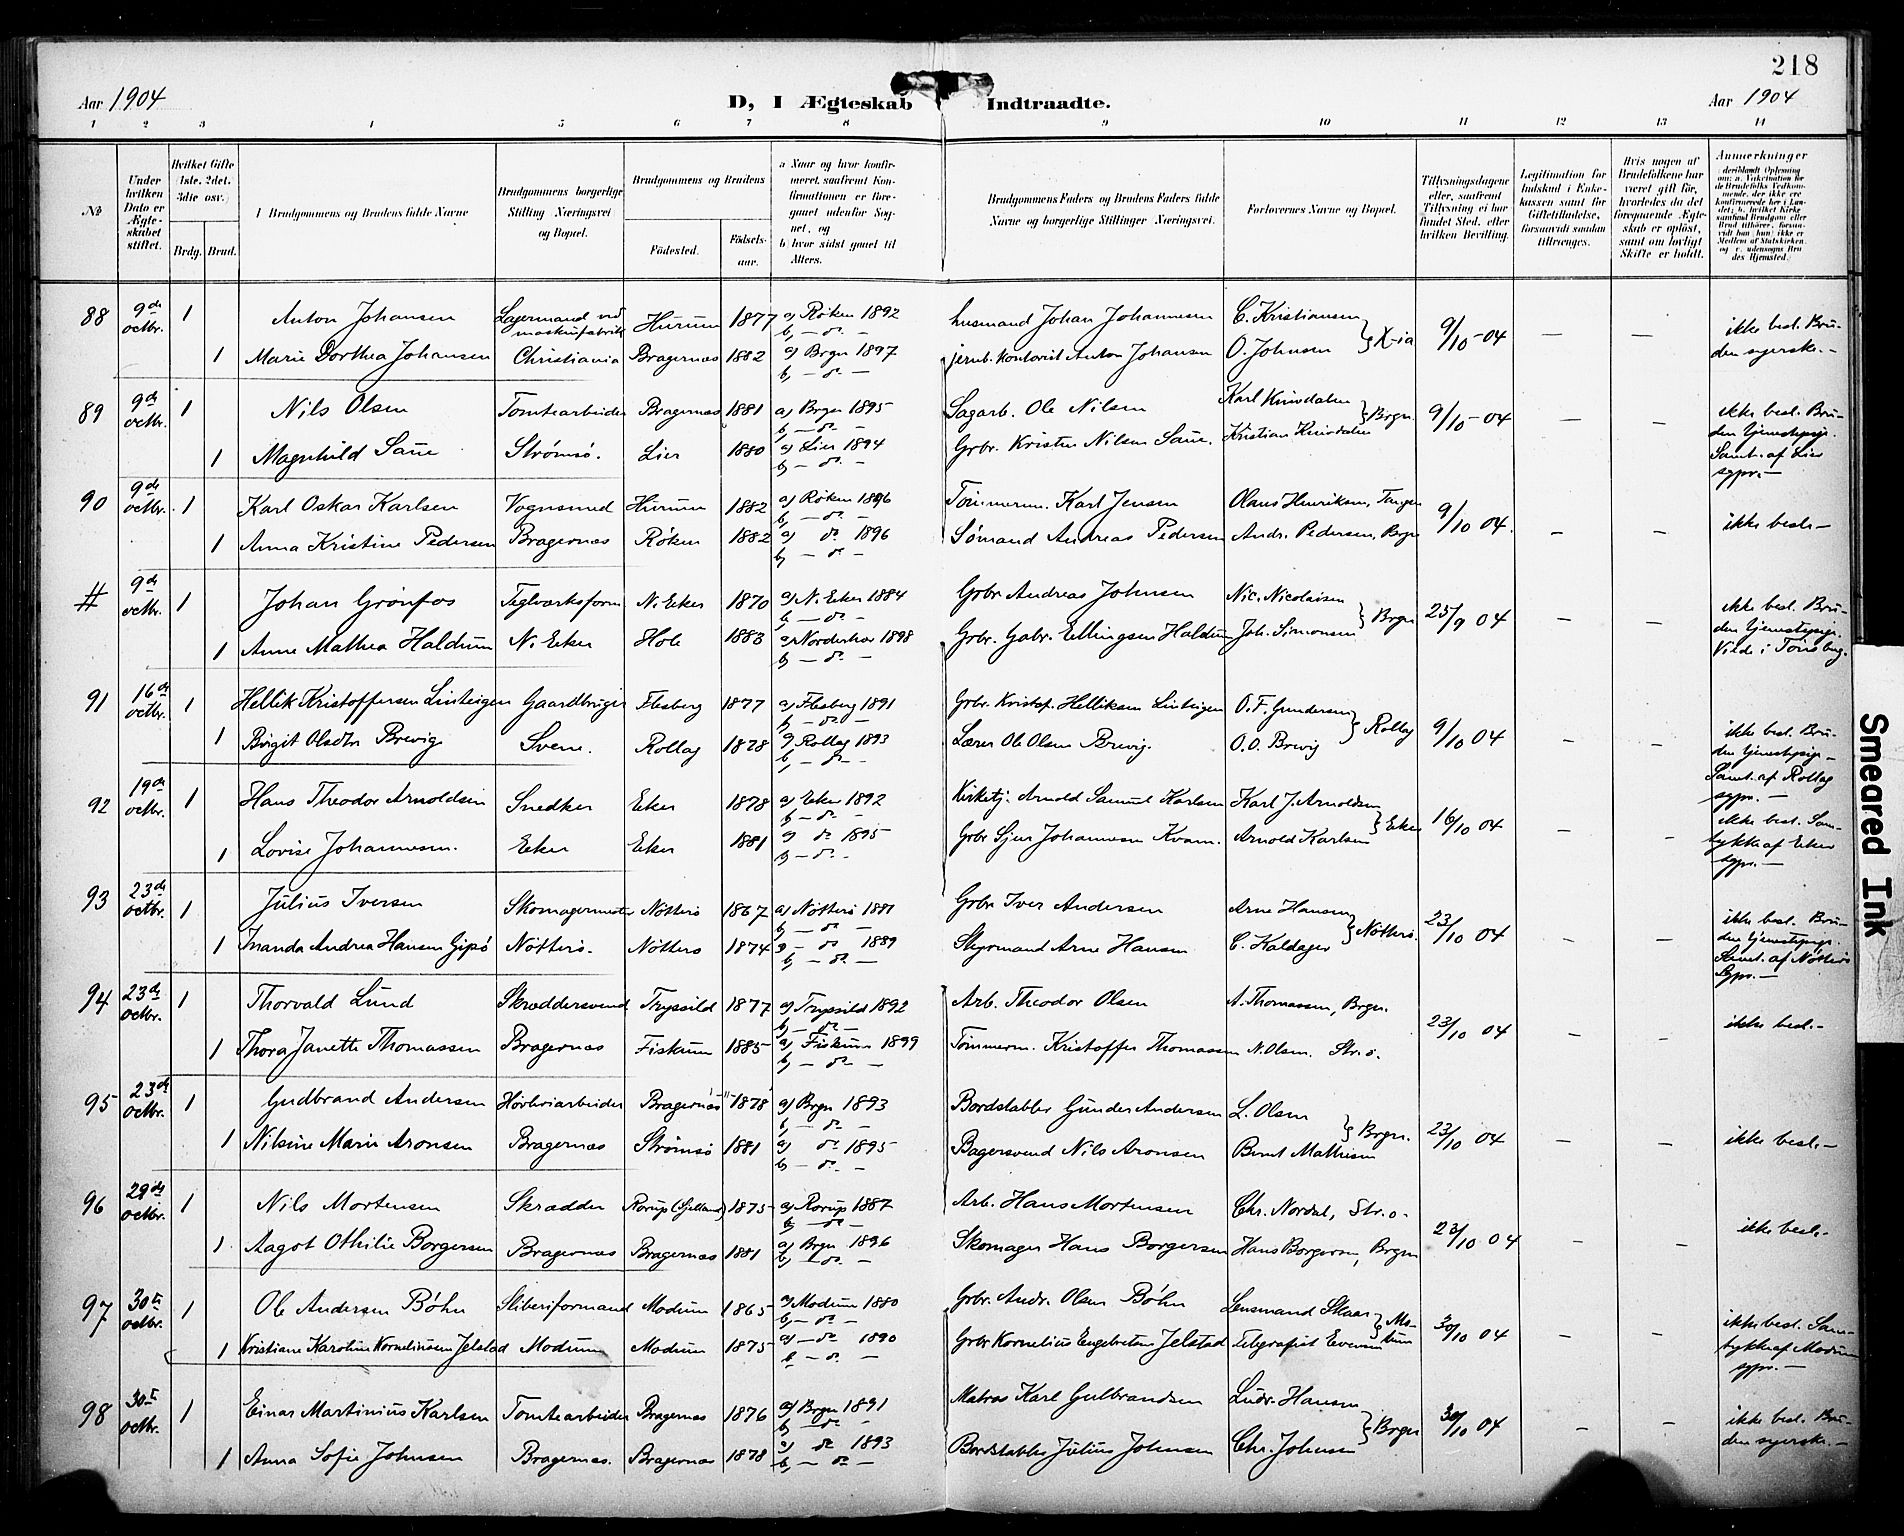 218
Aar 1904
D, I Ægteskab Indtraadte.
Aar 1904
1 2 3 4 5 6 7 8 9 10 11 12 13 14
No
Under hvilken Dato er Ægteskabet stiftet.
Hvilket Gifte 1ste, 2det, 3die osv.)
Brdg. Brud.
Brudgommens og Brudens fulde Navne
Brudgommens borgerlige Stilling Næringsvei og Bopæl.
Brudgommens og Brudens
Fødested.
Fødsels-aar.
a Naar og hvor konfirmeret, saafremt Konfirmationen er foregaaet udenfor Sognet, og
b hvor sidst gaaet til Alters.
Brudgommens Faders og Brudens Faders fulde Navne og borgerlige Stillinger Næringsvei.
Forlovernes Navne og Bopæl.
Tillysningsdagene eller, saafremt Tillysning ei har fundet Sted, efter hvilken Bevilling.
Legitimation for Indskud i Enkekassen samt for Giftetilladelse, forsaavidt saadan tiltrænges.
Hvis nogen af Brudefolkene har været gift før, hvorledes da det foregaaende Ægteskab er opløst, samt om lovligt Skifte er holdt.
Anmerkninger
88 9de octbr. 1 Anton Johansen Lagermand ved maskinfabrik Hurum 1877 a) Røken 1892 b) — do. — husmand Johan Johannesen C. Kristiansen } X-ia 9/10-04 — — ikke besl. Bru-
1 Marie Dorthea Johansen Christiania Bragernæs 1882 a) Brgn 1897 b) — do. — jernb. kontorist Anton Johansen O. Johnsen den syerske. —
89 9de octbr. 1 Nils Olsen Tomtearbeider Bragernæs 1881 a) Brgn 1895 b) — do. — Sagarb. Ole Nilsen Karl Knivdalen } Brgn. 9/10-04 — — ikke besl. Bru-
den tjenestepige.
1 Magnhild Saue Strømsø. Lier 1880 a) Lier 1894 b) — do. — Grbr. Kristen Nilsen Saue. Kristian Knivdalen Samt. af Lier
sypr. —
90 9de octbr. 1 Karl Oskar Karlsen Vognsmd Hurum 1882 a) Røken 1896 b) — do. — Tømmerm. Karl Jensen Olaus Henriksen, Tangen 9/10 04. — — ikke besl. —
1 Anna Kristine Pedersen Bragernæs Røken 1882 a) do. 1896 b) — do. — Sømand Andreas Pedersen Andr. Pedersen, Brgn
# 9de octbr. 1 Johan Grønfos Teglværksform N. Eker 1870 a) N. Eker 1884 b) — do. — Grbr Andreas Johnsen Nic. Nicolaisen } Brgn 25/9 04 — — ikke besl. Bru-
den tjenestepige.
1 Anne Mathea Haldum N. Eker Hole 1883 a) Norderhov 1898 b) — do. — Grbr. Gabr. Ellingsen Haldum Joh. Simonsen Viede i Tønsberg.
91 16de octbr. 1 Hellik Kristoffersen Linteigen Gaardbruger Flesberg 1877 a) Flesberg 1891 b) — do. — Grbr. Kristof. Helliksen Linteigen O. F. Gundersen } Rollag 9/10 04 — — ikke besl. Bru-
1 Birgit Olsdtr Brevig Svene. Rollag 1828 a) Rollag 1893 b) — do. — Lærer Ole Olsen Brevig. O. O. Brevig den tjenestepige —
Samt. af Rollag
sypr. —
92 19de octbr. 1 Hans Theodor Arnoldsen Snedker Eker 1878 a) Eker 1892 b) — do. — Kirketj. Arnold Samuel Karlsen Karl J. Arnoldsen } Eker 16/10 04 — — ikke besl. Sam-
1 Lovise Johannesen. Eker Eker 1881 a) do 1895 b) — do. — Grbr Sjur Johannesen Kvam. Arnold Karlsen tykke af Eker
sypr. —
93 23de octbr. 1 Julius Iversen Skomagermester Nøtterø 1867 a) Nøtterø 1881 b) — do. — Grbr Iver Andersen Arne Hansen } Nøtterø. 23/10 04 — — ikke besl. Bru-
den tjenestepige.
1 Inanda Andrea Hansen Gipø Nøtterø. Nøtterø 1874 a) — do 1889 b) — do. — Styrmand Arne Hansen C. Kaldager Samt. af Nøtterø
sypr. —
94 23de octbr. 1 Thorvald Lund Skræddersvend Tryssild 1877 a) Tryssild 1892 b) — do. — Arb. Theodor Olsen A. Thomassen, Brgn. 23/10 04 — — ikke besl. —
1 Thora Janette Thomassen Bragernæs Fiskum 1885 a) Fiskum 1899 b) — do — Tømmerm. Kristoffer Thomassen N. Olsen. Str.ø.
95 23de octbr. 1 Gudbrand Andersen Høvleriarbeider Bragernæs 1878 a) Brgn 1893 b) — do. — Bordstabler Gunder Andersen L. Olsen } Brgn. 23/10 04 — — ikke besl. —
1 Nilsine Marie Aronsen Bragernæs Strømsø 1881 a) do 1895 b) — do. — Bagersvend Nils Aronsen Bernt Mathisen
96 29de octbr. 1 Nils Mortensen Skrædder Rorup (Sjelland) 1875 a) Rorup 1887 b) — do. — Arb. Hans Mortensen Chr. Nordal, Str.ø. 23/10 04 — — ikke besl. —
1 Aagot Othilie Borgersen Bragernæs Bragernæs 1881 a) Brgn 1896 b) — do. — Skomager Hans Borgersen Hans Borgersen, Brgn
97 30te octbr. 1 Ole Andersen Bøhn Sliberiformand Modum 1865 a) Modum 1880 b) — do — Grbr. Andr. Olsen Bøhn Lensmand Skaar } Mo- 30/10 04 — — ikke besl. Sam-
1 Kristiane Karoline Kornelinsen Jelstad Modum Modum 1875 a) — do 1890 b) — do. — Grbr Kornelius Engebretsen Jelstad Telegrafist Evensen dum tykke af Modum
sypr. —
98 30te octbr. 1 Einar Martinius Karlsen Tomtearbeider Bragernæs 1876 a) Brgn 1891 b) — do. — Matros Karl Gulbrandsen Ludv. Hansen } Brgn 30/10 04 — — ikke besl. Bru-
1 Anna Sofie Johnsen Bragernæs. Bragernæs 1878 a) do 1893 b) — do — Bordstabler Julius Johnsen Chr. Johnsen den syerske. —
Smeared Ink